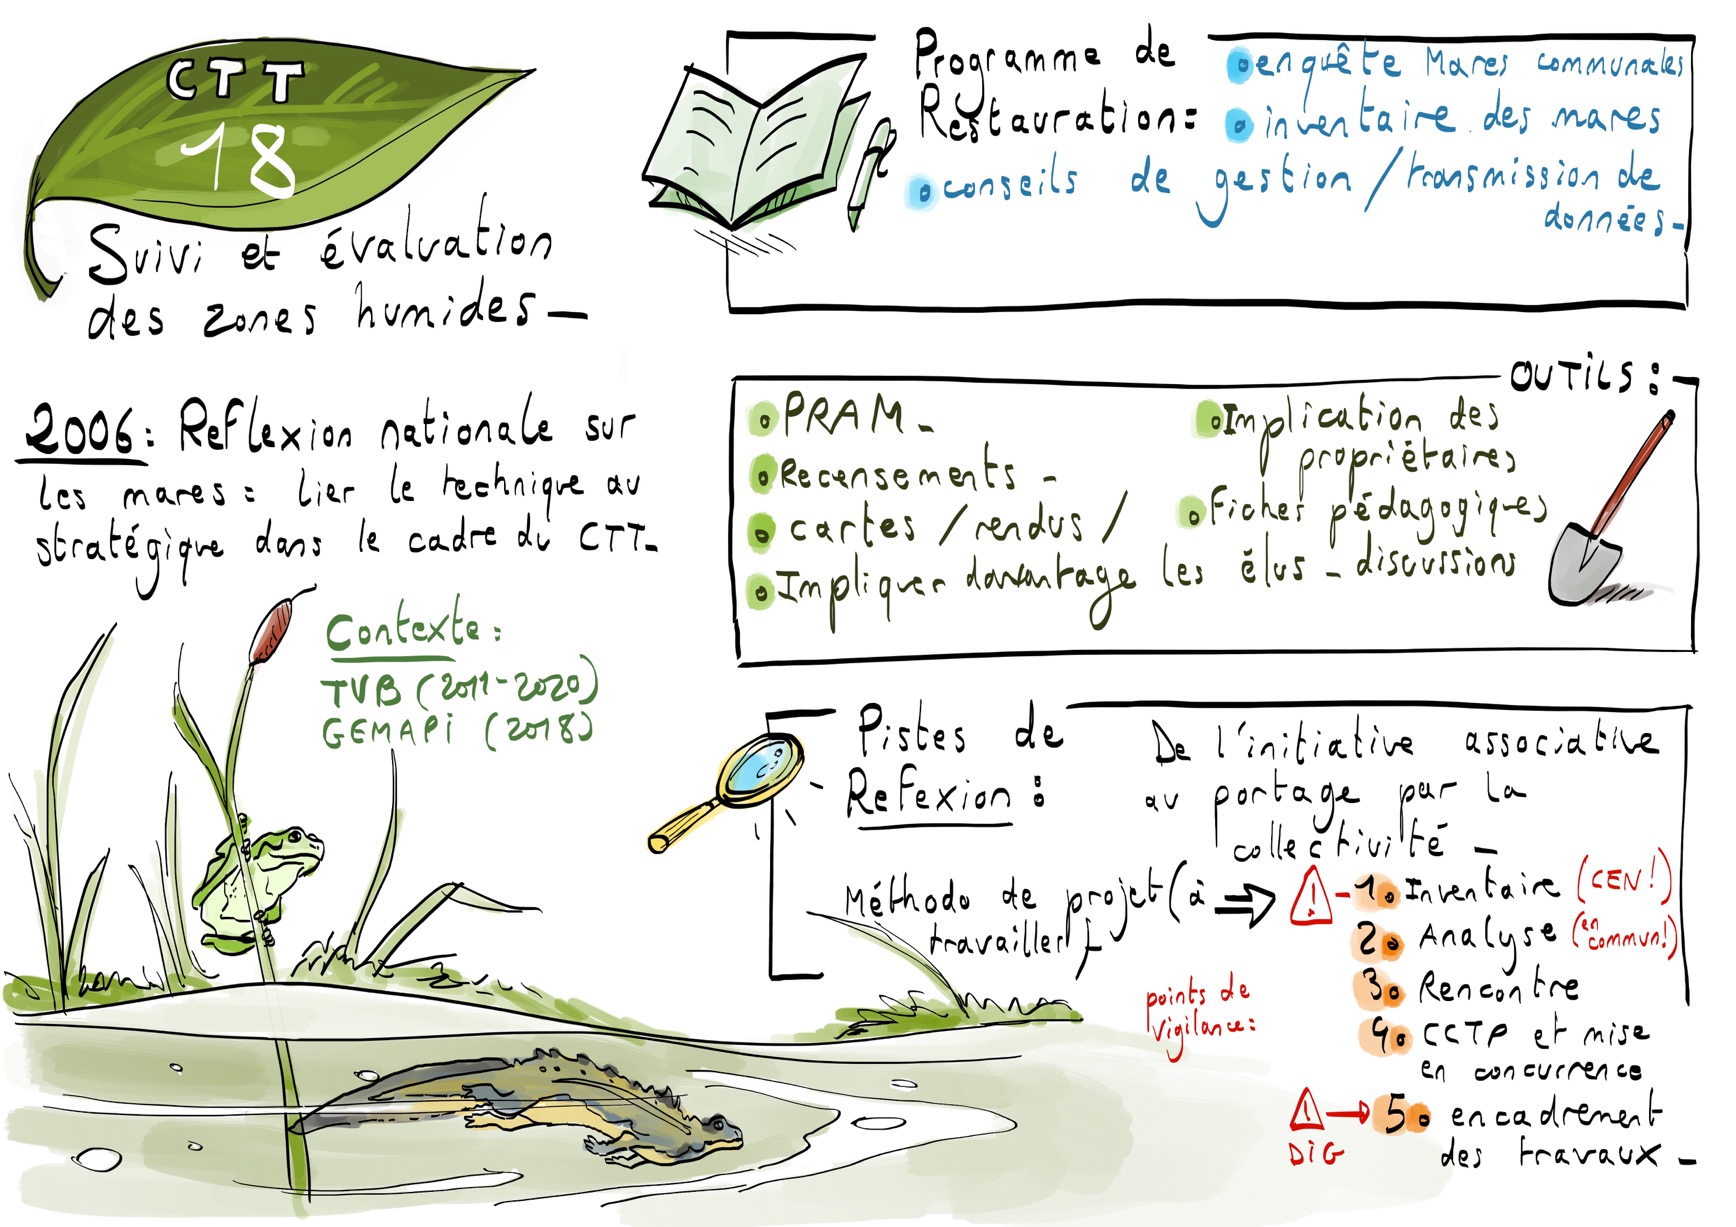 CTT
18
Suivi et évaluation
des zones humides_
2006: Reflexion nationale sur
les mares: lier le technique au
stratégique dans le cadre du CTT_
Contexte:
TVB (2011-2020)
GEMAPI (2018)
Programme de
Restauration:
• enquête Mares communales
• inventaire des mares
• conseils de gestion / transmission de
données_
OUTILS:
• PRAM_
• Recensements_
• cartes / rendus /
• Impliquer davantage les élus_discussions
• Implication des
propriétaires
• Fiches pédagogiques
Pistes de
Refexion:
De l'initiative associative
au portage par la
collectivité_
Méthodo de projet (à
travailler)
⇒ ! - 1. Inventaire (CEN!)
2. Analyse (en commun!)
3. Rencontre
4. CCTP et mise
en concurrence
points de
vigilance:
! → 5. encadrement
DIG
des travaux_